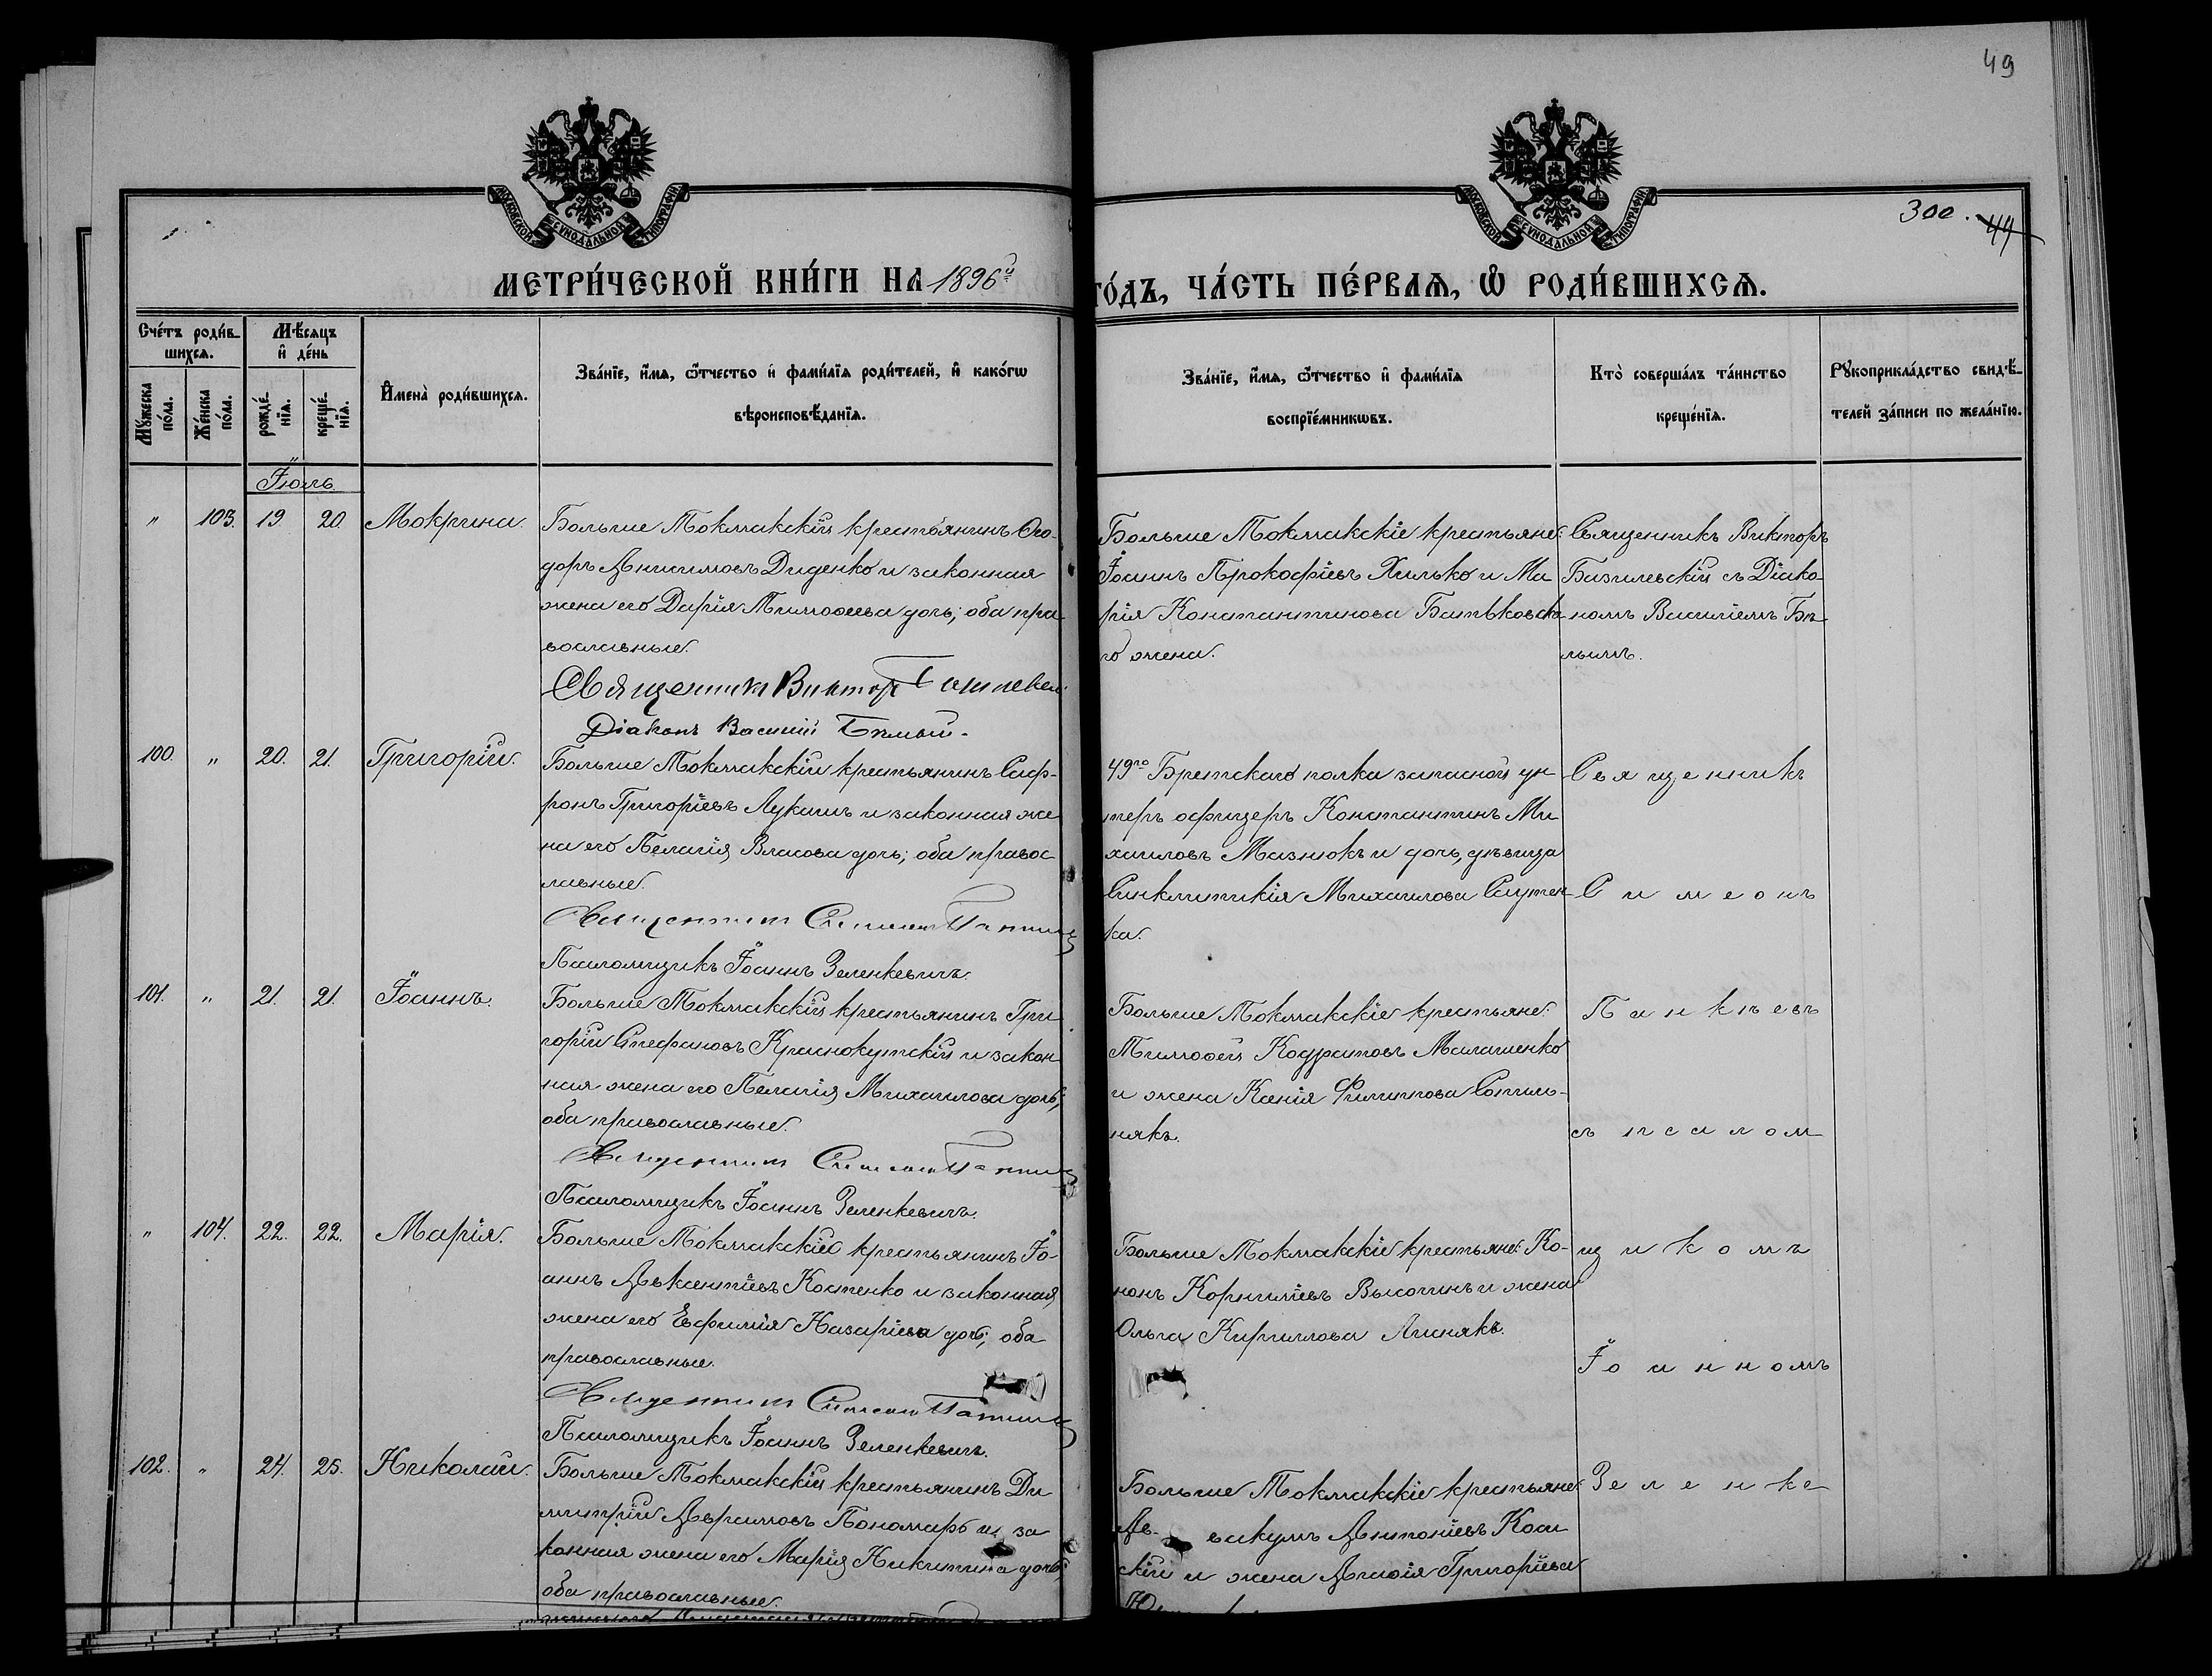 49
МОСКОВСКОЙ СѴНОДАЛЬНОЙ ТИПОГРАФІИ
МОСКОВСКОЙ СѴНОДАЛЬНОЙ ТИПОГРАФІИ
300. 49
МЕТРИ́ЧЕСКОЙ КНИ́ГИ НА 1896й
ГО́ДЪ, ЧА́СТЬ ПЕ́РВАѦ, Ѡ РОДИ́ВШИХСѦ.
Сче́тъ роди́в-
шихсѧ.
Мꙋ́жеска по́ла.
Же́нска по́ла.
Мѣ́сѧцъ и де́нь
рожде́-нїѧ.
креще́-нїѧ.
И҆мена̀ роди́вшихсѧ.
Зва́нїе, и҆́мѧ, ѻ҆́тчество и҆ фами́лїѧ роди́телей, и҆ како́гѡ
вѣроисповѣ́данїѧ.
Зва́нїе, и҆́мѧ, ѻ҆́тчество и҆ фами́лїѧ
воспрїе́мникѡвъ.
Кто̀ соверша́лъ та́инство
креще́нїѧ.
Рꙋкоприкла́дство свидѣ́-
телей за́писи по жела́нїю.
Іюль.
" 103. 19. 20. Мокрина.
Больше Токмакскій крестьянинъ Ѳео-
доръ Анисимовъ Диденко и законная
жена его Дарія Тимоѳеева дочь; оба пра-
вославные.
Священникъ Викторъ Базилевскій
Діаконъ Василій Бѣлый.
Больше Токмакскіе крестьяне:
Іоаннъ Прокофіевъ Хилько и Ма-
рія Константинова Батьковска-
го жена.
Священникъ Викторъ
Базилевскій съ Діако-
номъ Василіемъ Бѣ-
лымъ.
100. " 20. 21. Григорій.
Больше Токмакскій крестьянинъ Саф-
ронъ Григоріевъ Лукашъ и законная же-
на его Пелагія Власова дочь; оба правос-
лавные.
Священникъ Симеонъ
Псаломщикъ Іоаннъ Зеленкевичъ.
49го Брестскаго полка запасной ун-
теръ офицеръ Константинъ Ми-
хаиловъ Мазнюкъ и дочь, дѣвица
Синклитикія Михаилова Саутен-
ка.
Священникъ
Симеонъ
101. " 21. 21. Іоаннъ.
Больше Токмакскій крестьянинъ Гри-
горій Стефановъ Краснокутскій и закон-
ная жена его Пелагія Михаилова дочь;
оба православные.
Священникъ Симеонъ
Псаломщикъ Іоаннъ Зеленкевичъ.
Больше Токмакскіе крестьяне:
Тимоѳей Кодратовъ Малашенко
и жена Ксенія Филиппова Сотъло-
някъ.
Панкѣевъ
съ псалом-
" 104. 22. 22. Марія.
Больше Токмакскій крестьянинъ Іо-
аннъ Авксентіевъ Костенко и законная
жена его Евфимія Назаріева дочь; оба
православные.
Священникъ Симеонъ
Псаломщикъ Іоаннъ Зеленкевичъ.
Больше Токмакскіе крестьяне: Ко-
нонъ Корниліевъ Высочинъ и жена
Ольга Кириллова Линякъ.
щикомъ
Іоанномъ
102. " 24. 25. Николай.
Больше Токмакскій крестьянинъ Ди-
митрій Аврамовъ Пономарь и за-
конная жена его Марія Никитина дочь;
оба православные.
Больше Токмакскіе крестьяне:
Ав- вакумъ Антоніевъ Коса-
скій и жена Агаѳія Григоріева
Зеленке-